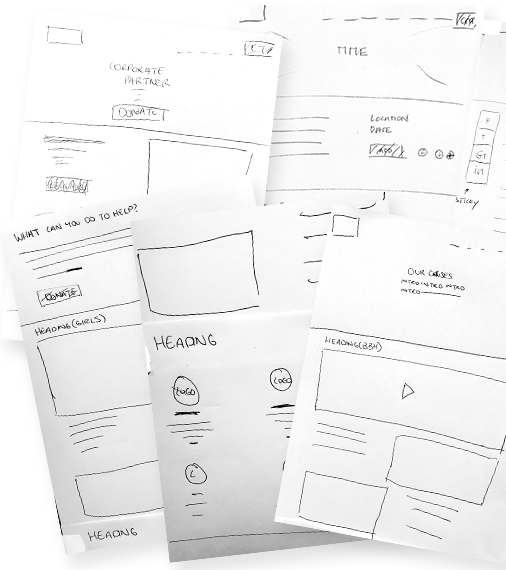 CTA
CORPORATE
PARTNER
DONATE
CTA
TITLE
LOCATION
DATE
F
T
G+
in
STICKY
WHAT CAN YOU DO TO HELP?
DONATE
HEADING (GIRLS)
HEADING
HEADING
LOGO
LOGO
L
OUR CAUSES
INTRO INTRO INTRO
INTRO
HEADING (BBH)